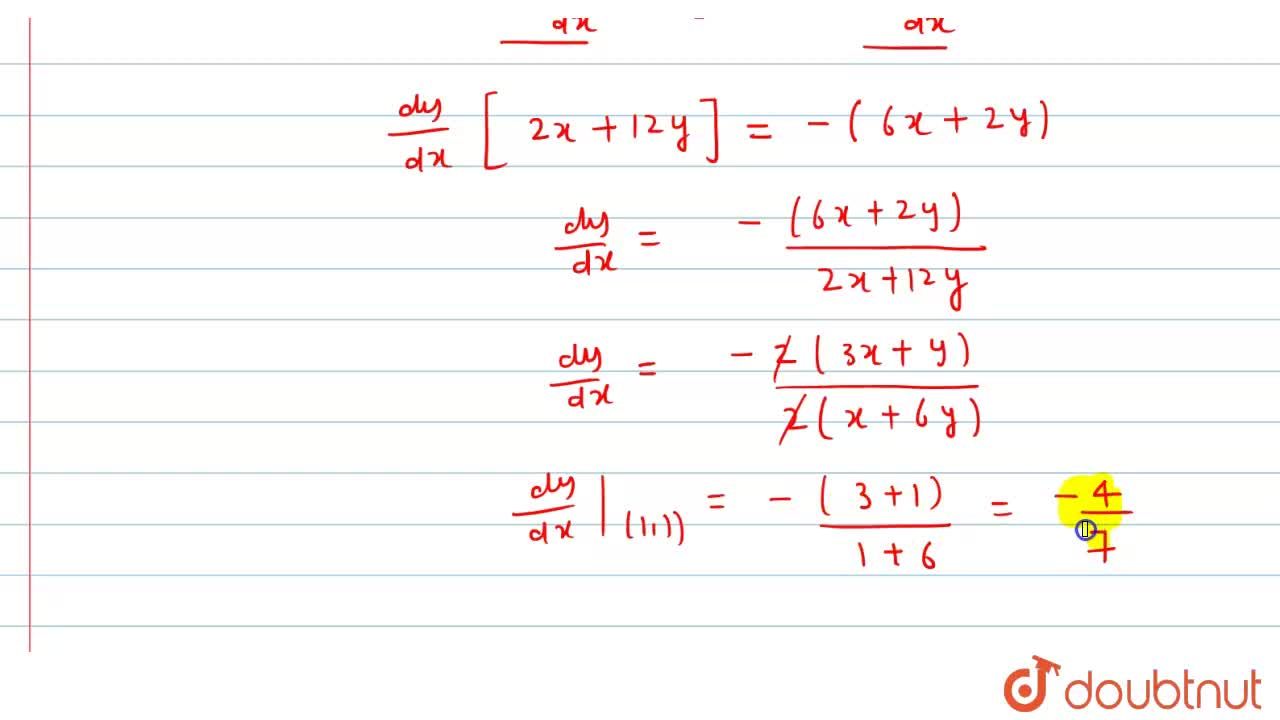 dx dx
dy/dx [ 2x + 12y ] = - ( 6x + 2y )
dy/dx = - (6x + 2y) / 2x + 12y
dy/dx = - 2 ( 3x + y ) / 2 ( x + 6y )
dy/dx | (1,1) = - ( 3 + 1 ) / 1 + 6 = - 4 / 7
doubtnut